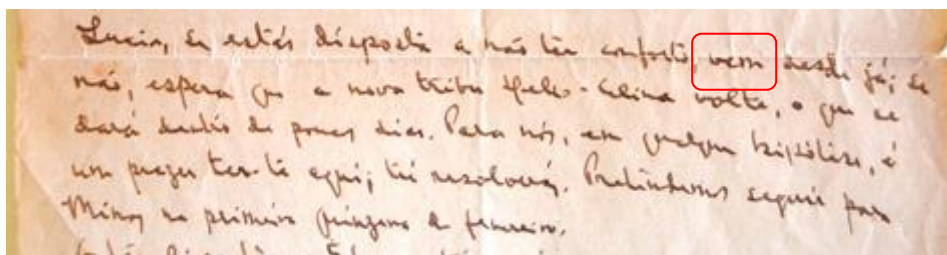 Lucia, se estás disposta a não ter conforto, vem desde já; se
não, espera que a nova tribu Helio-Celina volte, o que se
dará dentro de poucos dias. Para nós, em qualquer hipótese, é
um prazer ter-te aqui; tu resolverás. Pretendemos seguir para
Minas na primeira quinzena de fevereiro.